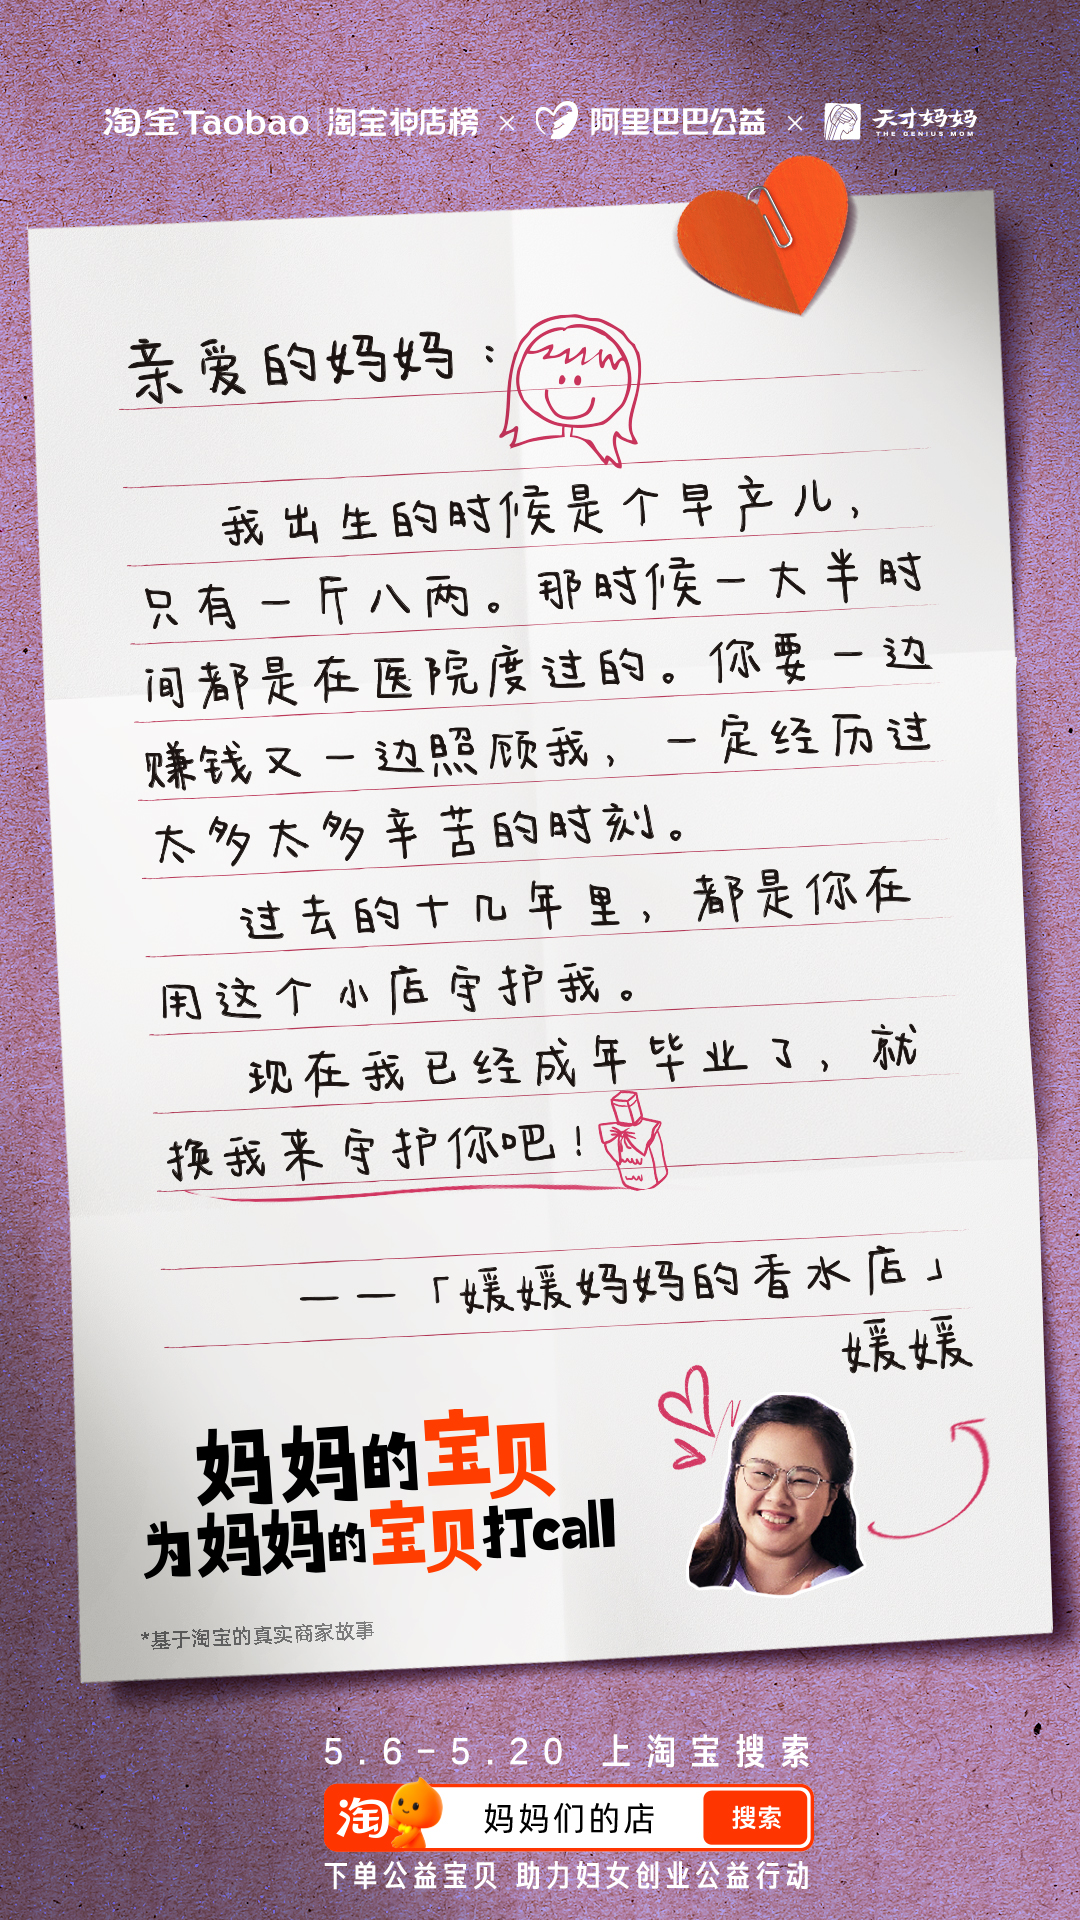 淘宝Taobao 淘宝神店榜 × 阿里巴巴公益 × 天才妈妈
THE GENIUS MOM
亲爱的妈妈：
我出生的时候是个早产儿，
只有一斤八两。那时候一大半时
间都是在医院度过的。你要一边
赚钱又一边照顾我，一定经历过
太多太多辛苦的时刻。
过去的十几年里，都是你在
用这个小店守护我。
现在我已经成年毕业了，就
换我来守护你吧！
——「媛媛妈妈的香水店」
媛媛
妈妈的宝贝
为妈妈的宝贝打call
*基于淘宝的真实商家故事
5.6-5.20 上淘宝搜索
淘 妈妈们的店 搜索
下单公益宝贝 助力妇女创业公益行动